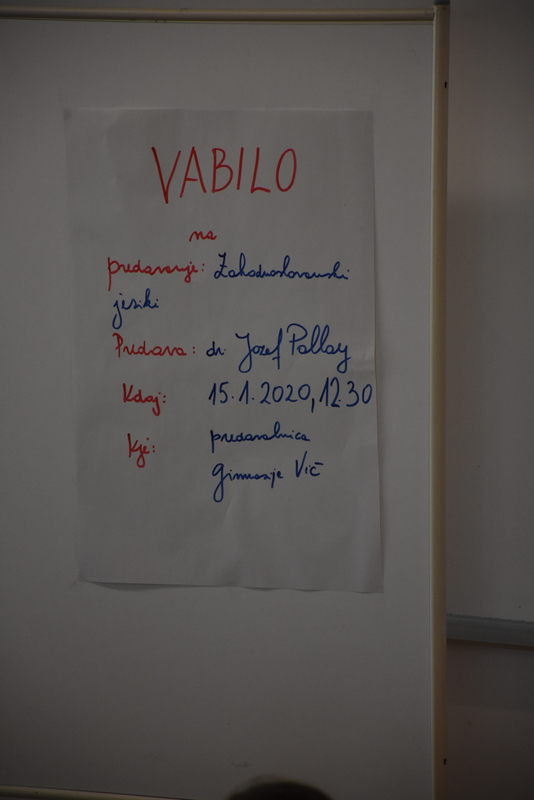 VABILO
na
predavanje: Zahodnoslovanski
jeziki
Predava: dr. Jozef Pallay
Kdaj: 15.1.2020, 12.30
Kje: predavalnica
Gimnazije Vič